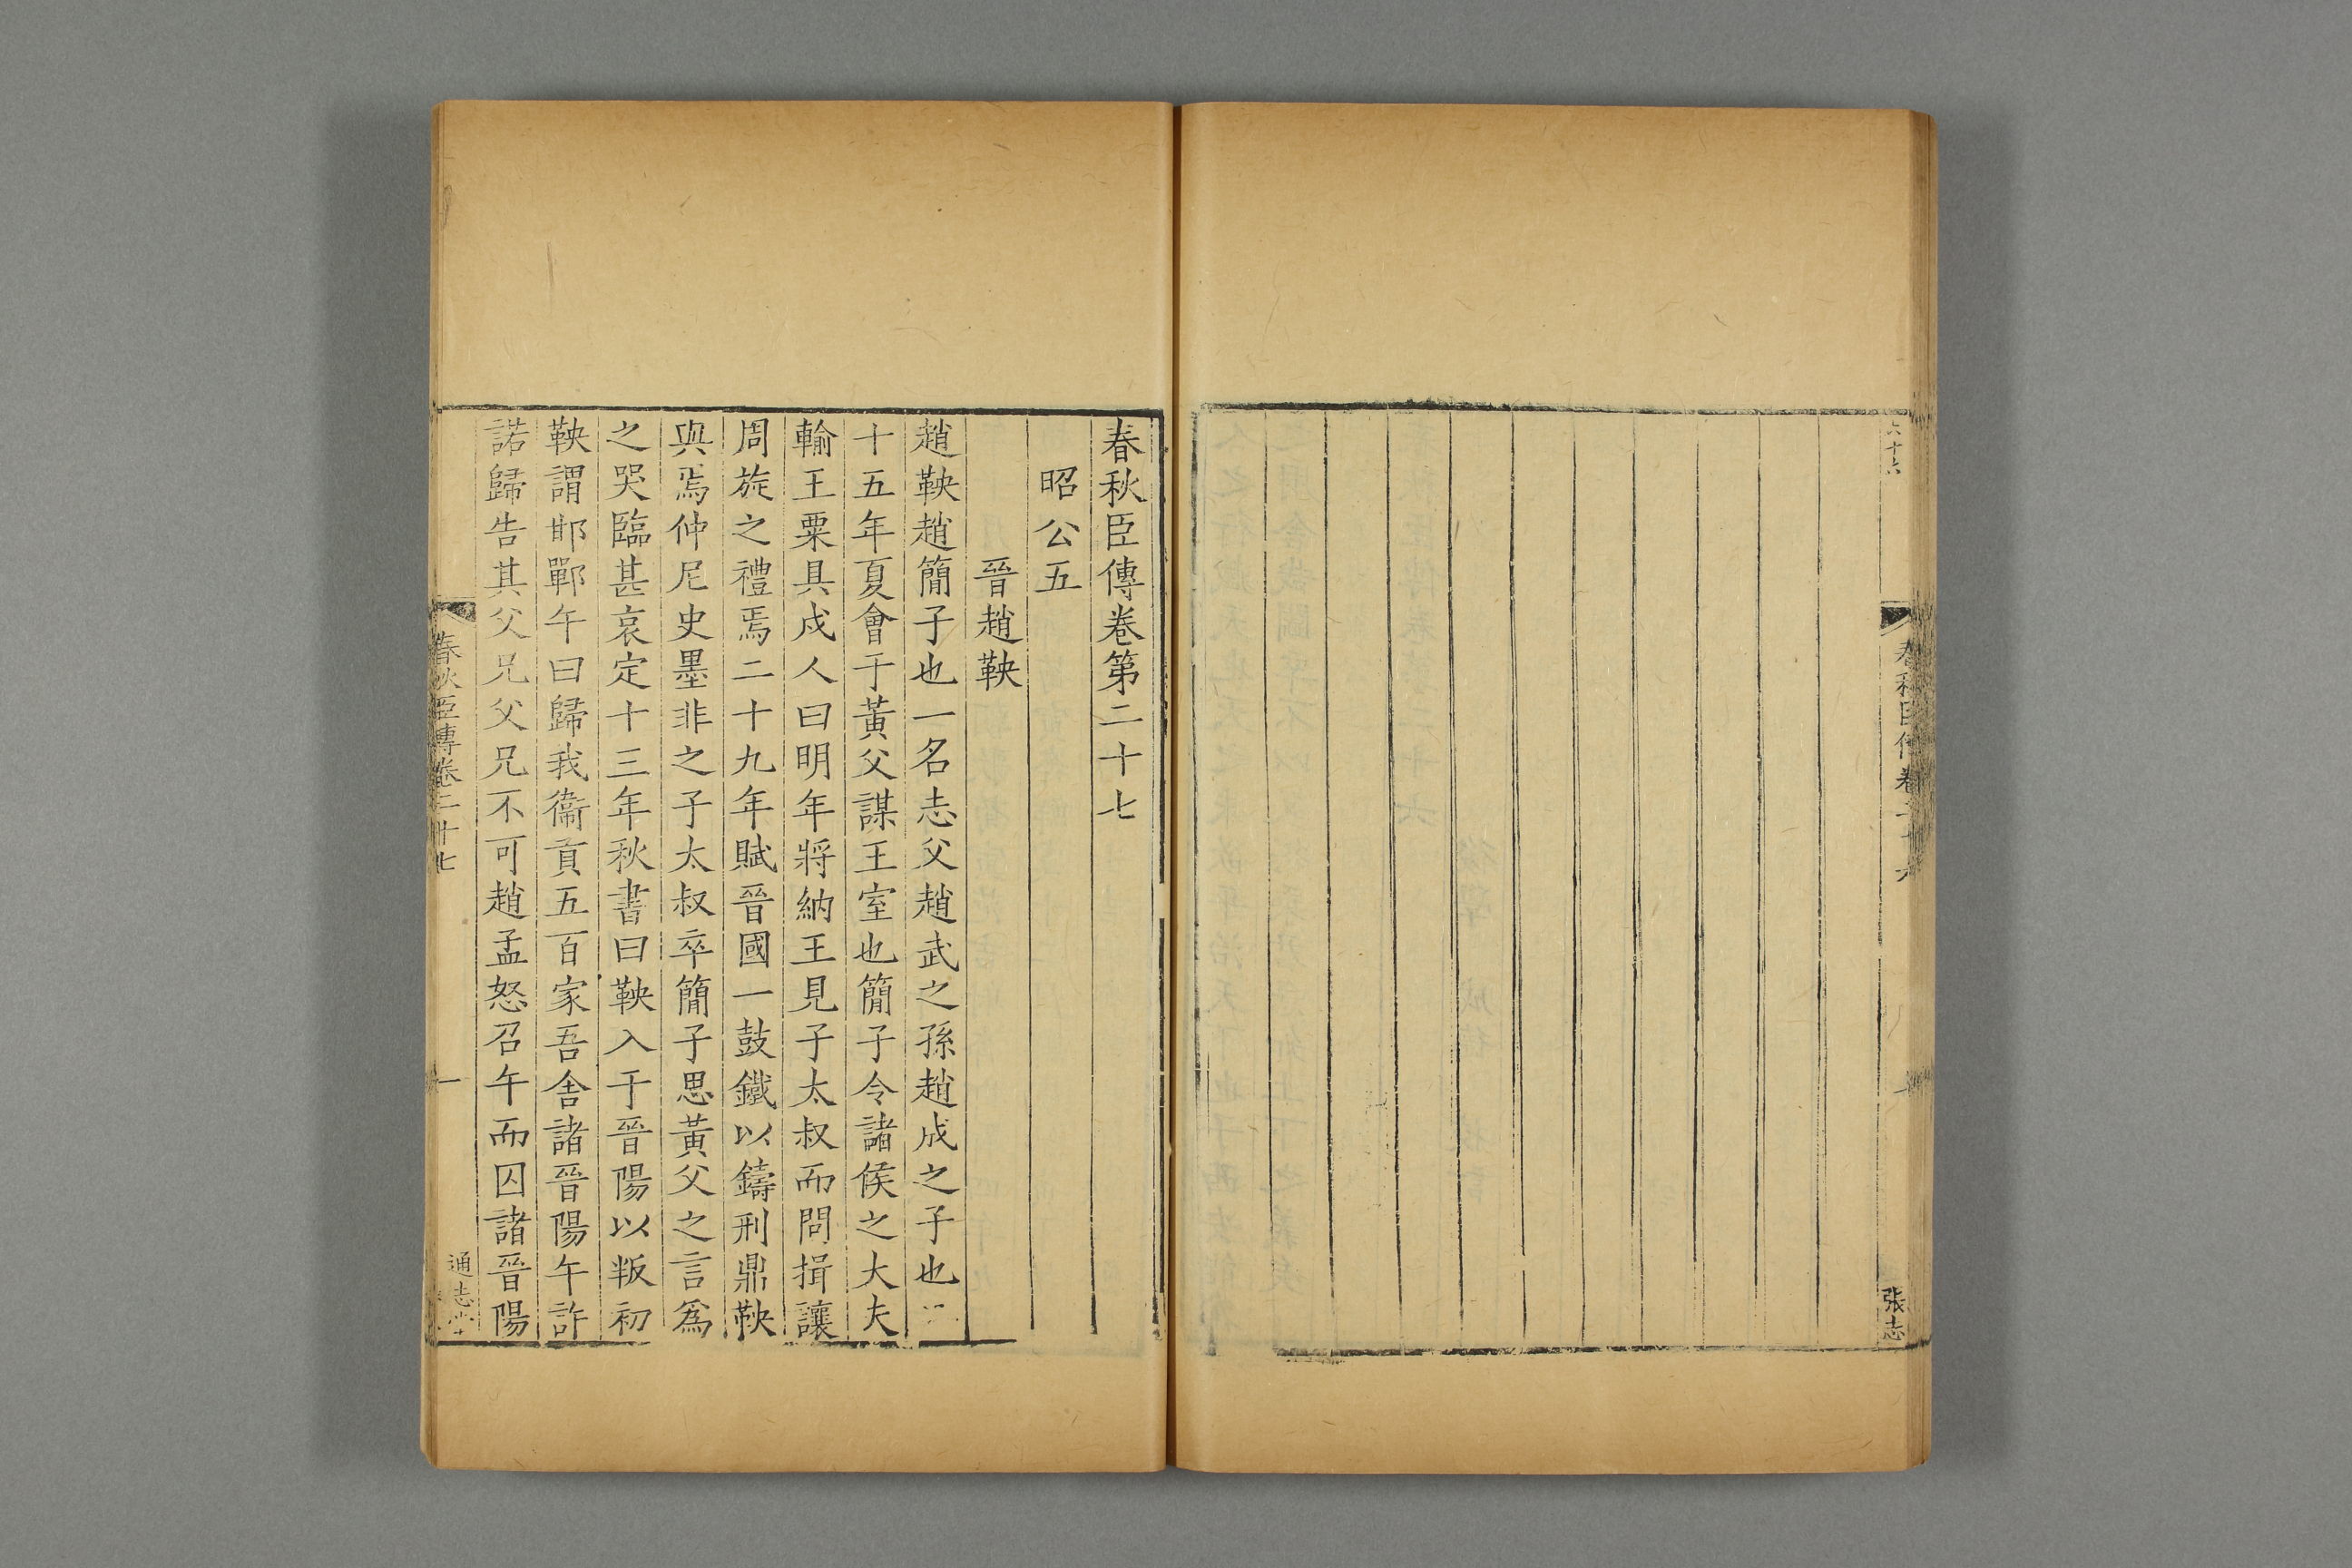 六十六
春秋臣傳卷二十六
張志
春秋臣傳卷第二十七
昭公五
晉趙鞅
趙鞅趙簡子也一名志父趙武之孫趙成之子也二
十五年夏會于黃父謀王室也簡子令諸侯之大夫
輸王粟具戍人曰明年將納王見子太叔而問揖讓
周旋之禮焉二十九年賦晉國一鼓鐵以鑄刑鼎鞅
與焉仲尼史墨非之子太叔卒簡子思黃父之言爲
之哭臨甚哀定十三年秋書曰鞅入于晉陽以叛初
鞅謂邯鄲午曰歸我衞貢五百家吾舍諸晉陽午許
諾歸告其父兄父兄不可趙孟怒召午而囚諸晉陽
春秋臣傳卷二十七
一
通志堂